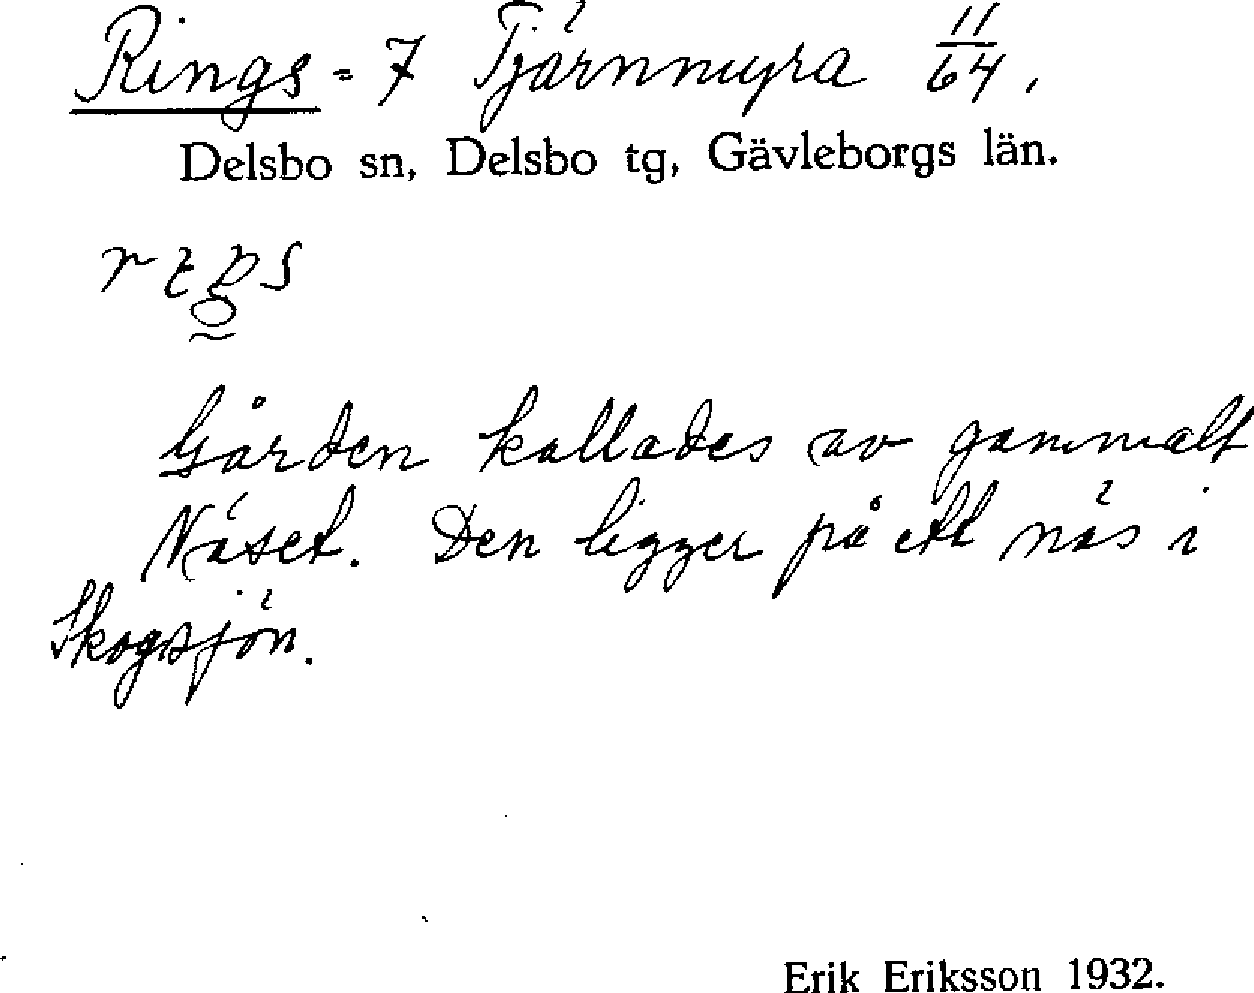 Rings = 7 Tjärnmyra 11/64.
Delsbo sn, Delsbo tg, Gävleborgs län.
Gården kallades av gammalt
Näset. Den ligger på ett näs i
Skogsjön.
Erik Eriksson 1932.